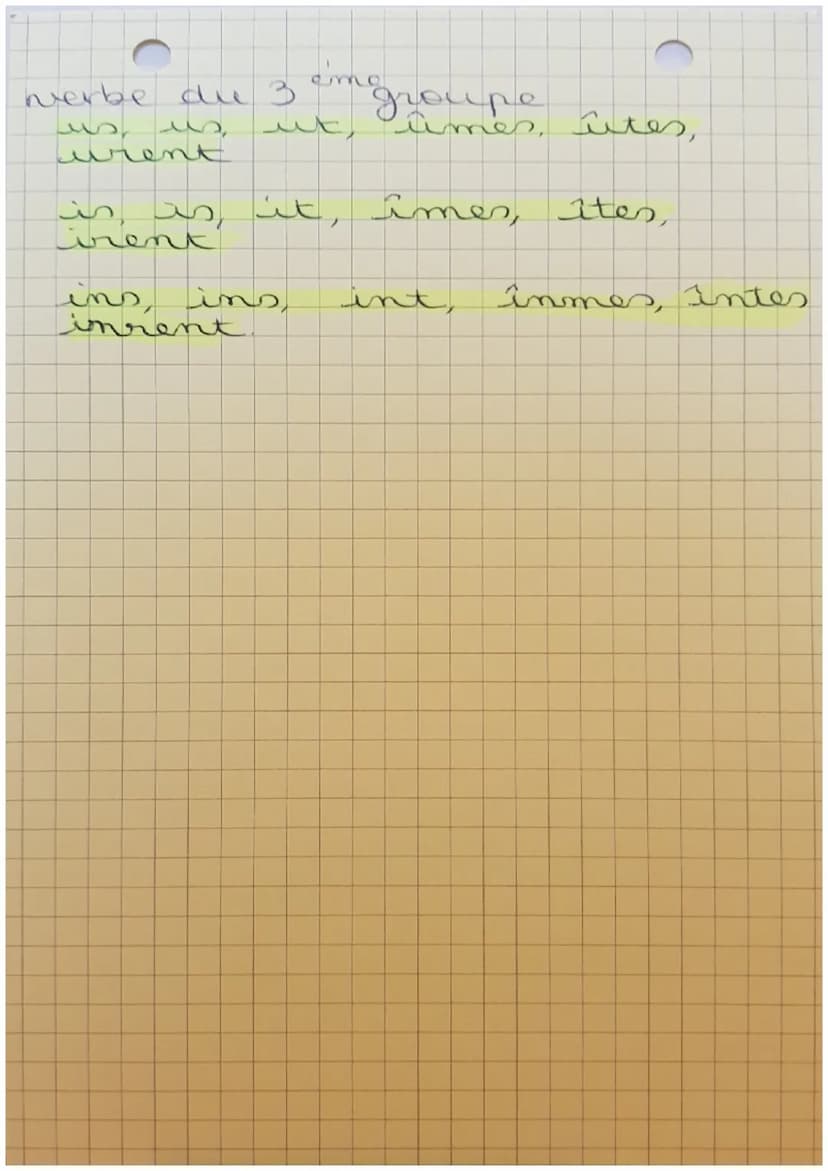 verbe du 3ème groupe
us, us, ut, ûmes, ûtes,
urent
is, is, it, îmes, îtes,
irent
ins, ins, int, înmes, întes
inrent.